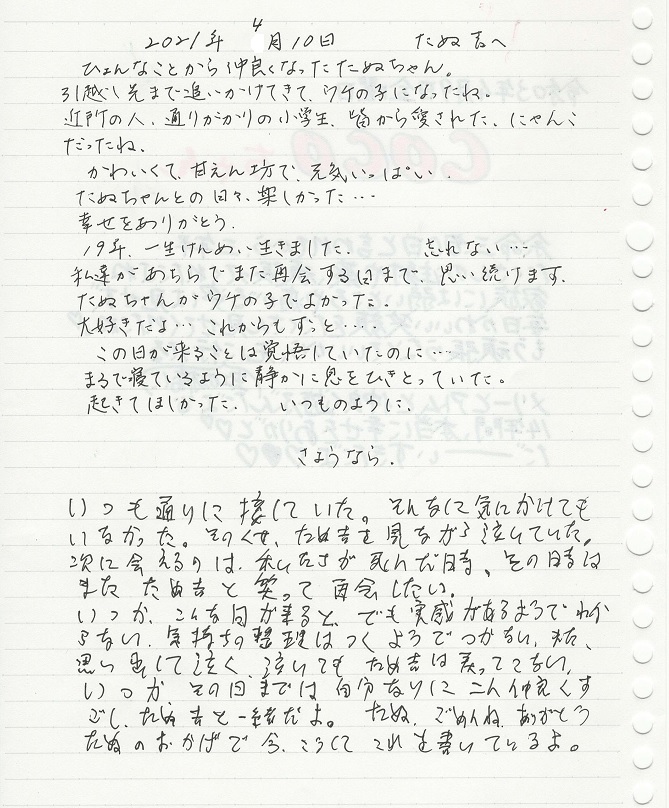 2021年4月10日 たぬ吉へ
ひょんなことから仲良くなったたぬちゃん。
引越し先まで追いかけてきて、ウチの子になったね。
近所の人、通りがかりの小学生、皆から愛された、にゃんこ
だったね、
かわいくて、甘えん坊で、元気いっぱい、
たぬちゃんとの日々、楽しかった…
幸せをありがとう、
19年、一生けんめい生きました、 忘れない…
私達があちらでまた再会する日まで、思い続けます、
たぬちゃんがウチの子でよかった、
大好きだよ… これからもずっと‥‥
この日が来ることは覚悟していたのに…
まるで寝ているように静かに息をひきとっていた。
起きてほしかった、 いつものように、
さようなら、
いつも通りに接していた。そんなに気にかけても
いなかった。そのくせ、たぬ吉を見ながら泣いていた。
次に会えるのは、私たちが死んだ時、その時は
また たぬ吉と笑って再会したい。
いつか、こんな日が来ると、でも実感があるようでわか
らない、気持ちの整理はつくようでつかない、また、
思い出して泣く、泣いても たぬ吉は戻ってこない、
いつか、その日までは自分なりに 仲良くす
ごし、たぬ吉と一緒だよ。 たぬ、ごめんね、ありがとう
たぬのおかげで今、こうしてこれを書いているよ。